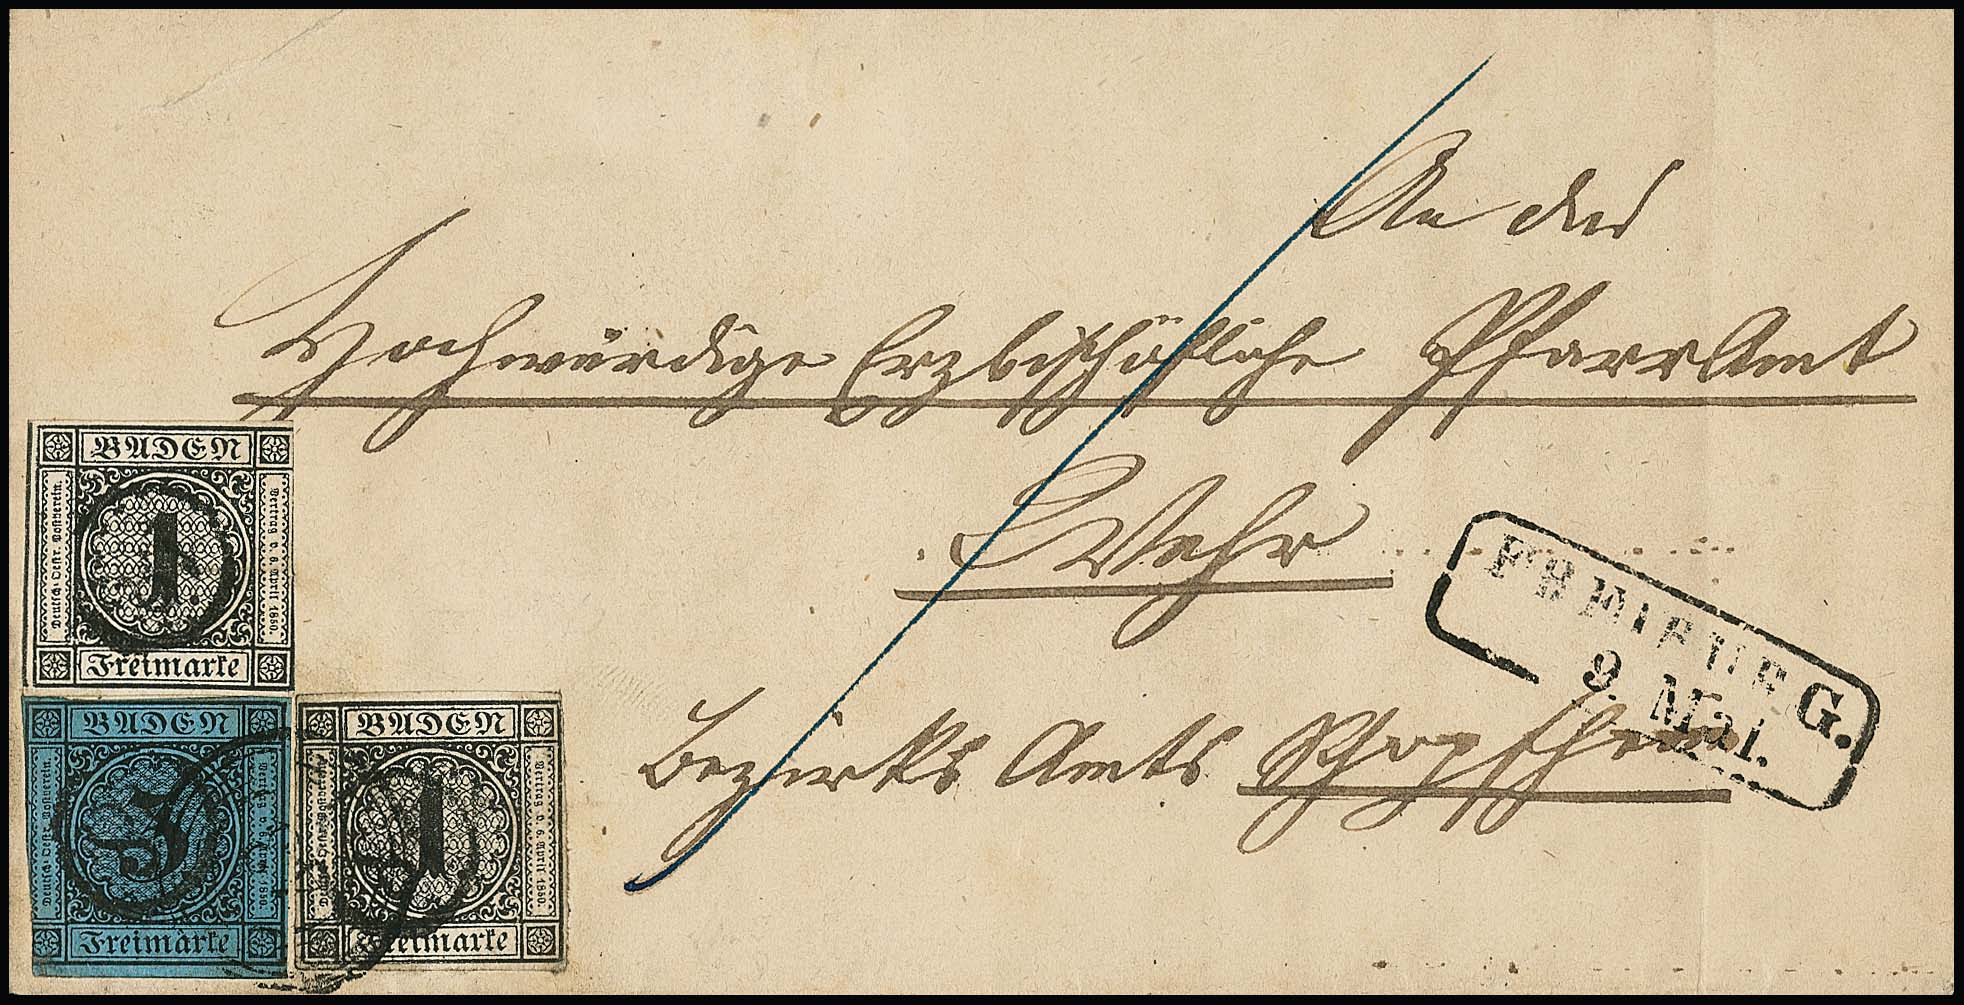 An das
Hochwürdige Erzbischöfliche PfarrAmt
Wehr
FREIBURG.
9. Mai.
Bezirks Amts Schopfheim
BADEN
Deutsch-Oestr. Postverein.
1
Vertrag v. 6. April 1850.
Freimarke
BADEN
Deutsch-Oestr. Postverein.
3
Vertrag v. 6. April 1850.
Freimarke
BADEN
Deutsch-Oestr. Postverein.
1
Vertrag v. 6. April 1850.
Freimarke